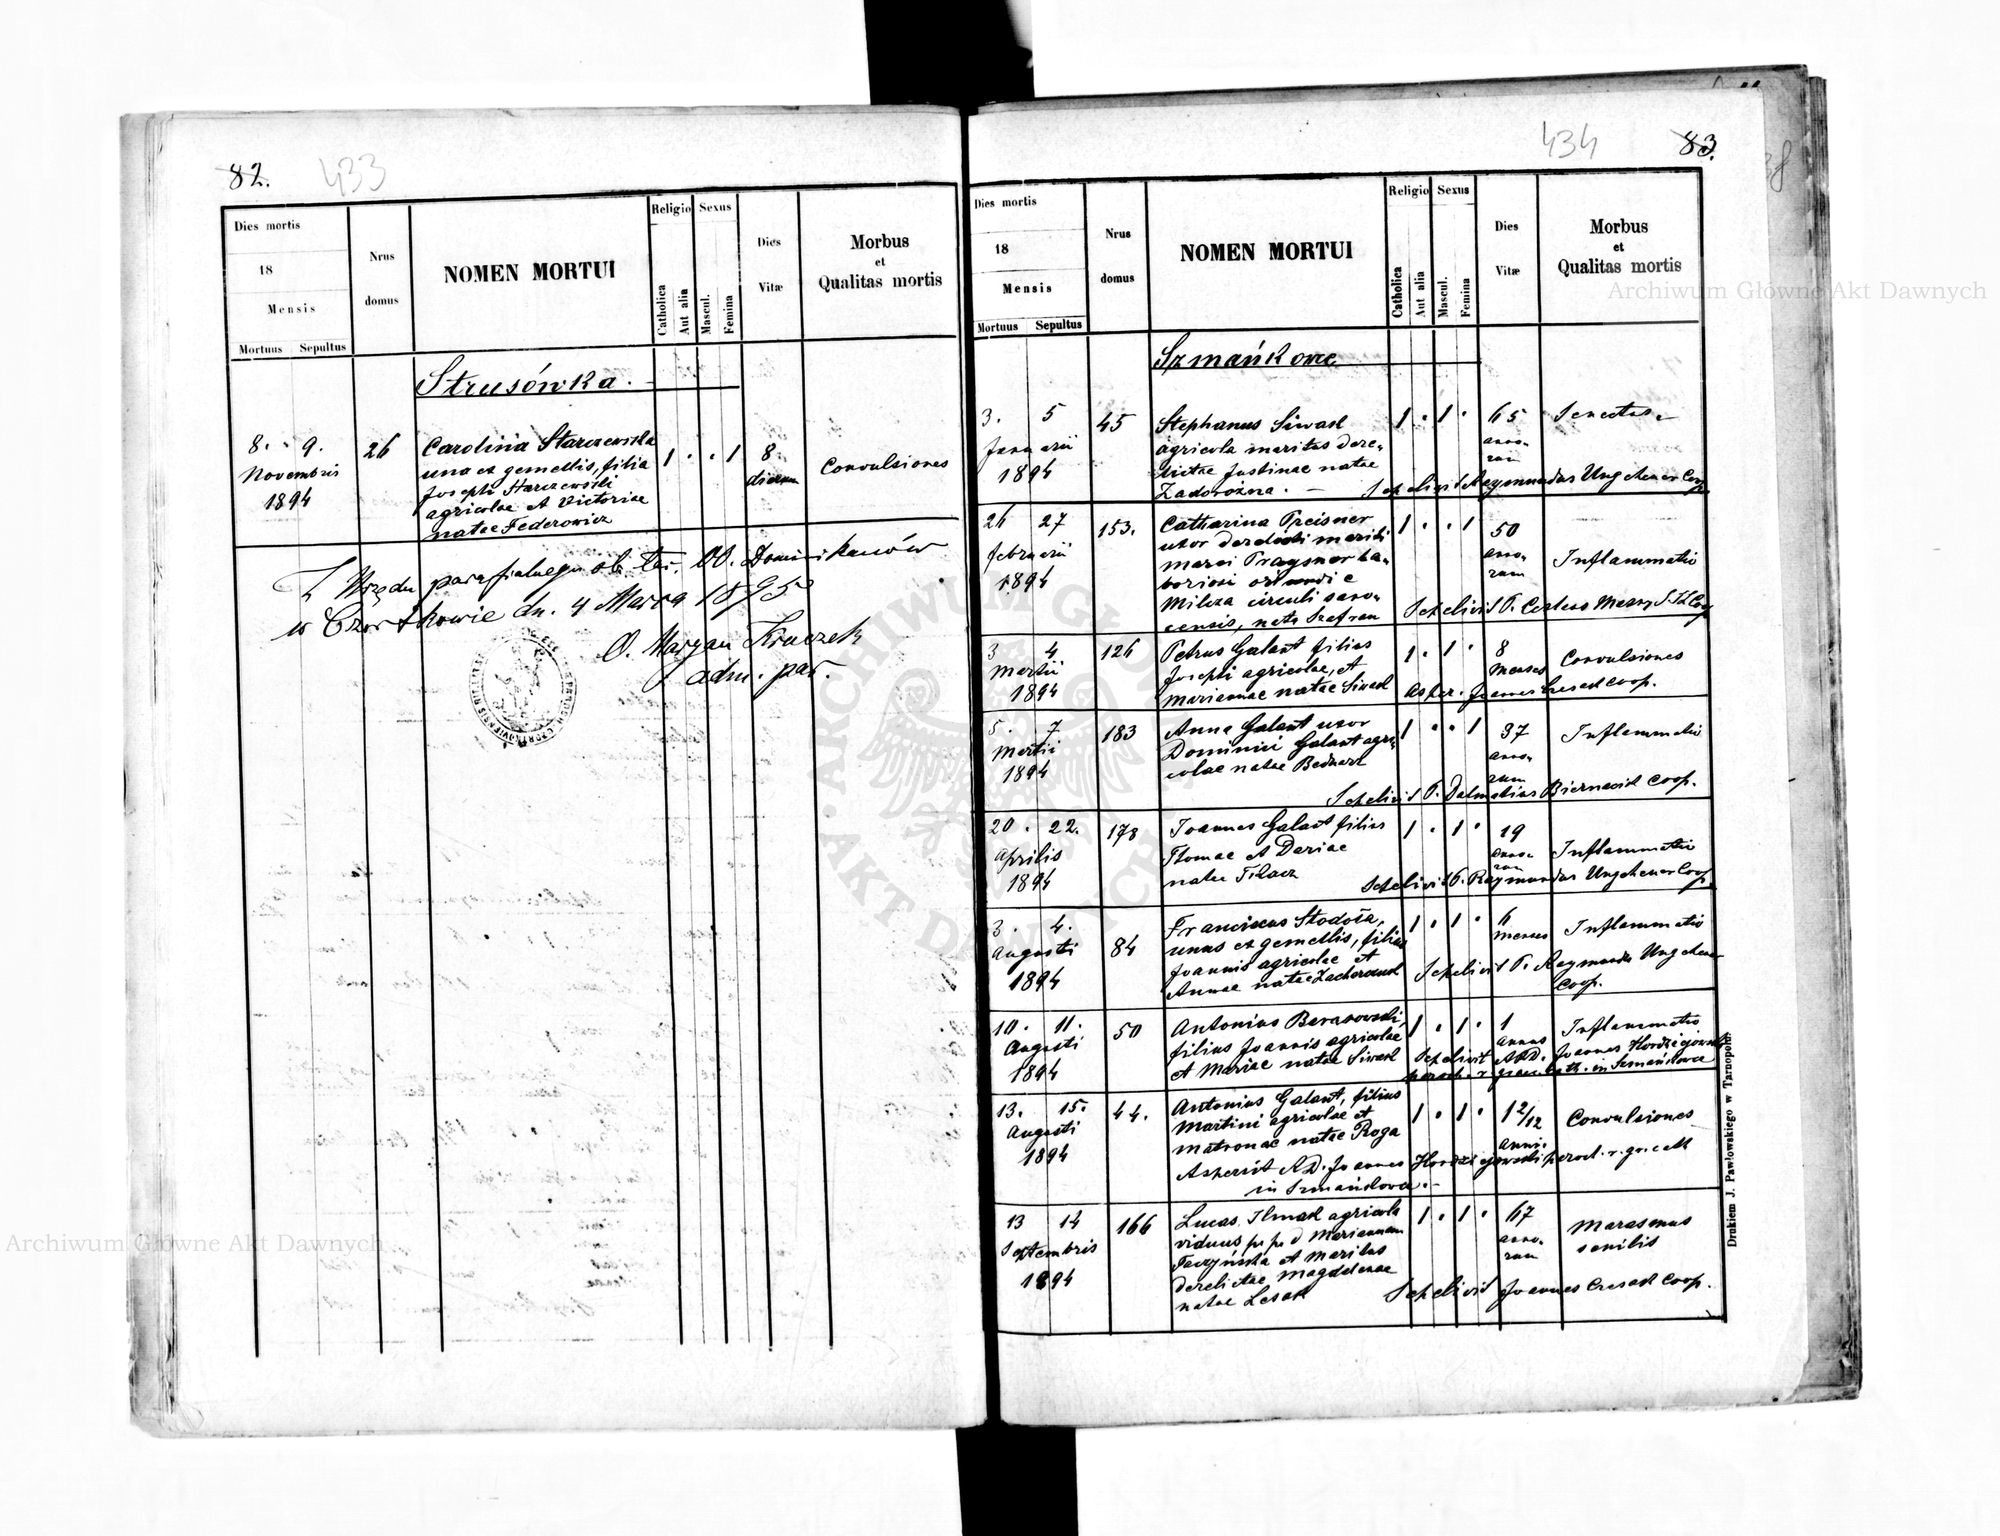 82.
433
Dies mortis
18
Mensis
Mortuus Sepultus
Nrus
domus
NOMEN MORTUI
Religio
Catholica
Aut alia
Sexus
Mascul.
Femina
Dies
Vitæ
Morbus
et
Qualitas mortis
Strusówka.
8. 9.
Novembris
1894
26
Carolina Starczewska
una ex gemellis, filia
Josephi Starczewski
agricolae et Victoriae
natae Federowicz
1 . . 1
8
dierum
Convulsiones
Z Urzędu parafialnego ob. łac. OO. Dominikanów
w Czortkowie dn. 4 Marca 1895
O. Maryan Kruczek
adm. par.
434
83.
Dies mortis
18
Mensis
Mortuus Sepultus
Nrus
domus
NOMEN MORTUI
Religio
Catholica
Aut alia
Sexus
Mascul.
Femina
Dies
Vitæ
Morbus
et
Qualitas mortis
Szmańkowce
3. 5
Januarii
1894
45
Stephanus Siwak
agricola maritus dere-
lictae Justinae natae
Zadorożna. —
1 . 1 .
65
anno-
rum
Senectus
Sepelivit Raymundus Ungeheuer Coop.
26 27
februarii
1894
153.
Catharina Preisner
uxor derelicti mariti
Marci Praysner la-
boriosi oriundi e
Milcza circuli sano-
censis, nata Szafran
1 . . 1
50
anno-
rum
Inflammatio
Sepelivit P. Ceslaus Coop
3 4
Martii
1894
126
Petrus Galant filius
Josephi agricolae, et
Mariannae natae Siwak
1 . 1 .
8
Menses
Convulsiones
Asper. Joannes Czesak Coop.
5. 7
Martii
1894
183
Anna Galant uxor
Dominici Galant agri-
colae natae Bednarz
1 . . 1
37
anno-
rum
Inflammatio
Sepelivit P. Dalmatius Biernacik Coop.
20. 22.
Aprilis
1894
178
Joannes Galant filius
Thomae et Dariae
natae Tkacz
1 . 1 .
19
anno-
rum
Inflammatio
Sepelivit P. Raymundus Ungeheuer Coop.
3. 4.
Augusti
1894
84
Franciscus Stodoła,
unus ex gemellis, filius
Joannis agricolae et
Annae natae
1 . 1 .
6
menses
Inflammatio
Sepelivit P. Raymundus Ungeheuer
Coop.
10. 11.
Augusti
1894
50
Antonius Baranowski,
filius Joannis agricolae
et Mariae natae Siwak
1 . 1 .
1
annus
Inflammatio
Sepelivit A.D. Joannes Hordziejowski
paroch. r. graec. cath. in Szmańkowce
13. 15.
Augusti
1894
44.
Antonius Galant, filius
Martini agricolae et
Matronae natae Roga
1 . 1 .
1 2/12
anni
Convulsiones
Aspersit A.D. Joannes Hordziejowski paroch. r. gr. cath
in Szmańkowce. —
13 14
Septembris
1894
166
Lucas Tkmak agricola
viduus p. p. d Mariannam
Taczyńska et maritus
derelictae Magdalenae
natae Lesak
1 . 1 .
67
anno-
rum
Marasmus
senilis
Sepelivit Joannes Czesak Coop.
Drukiem J. Pawłowskiego w Tarnopolu.
Archiwum Główne Akt Dawnych
Archiwum Główne Akt Dawnych
ARCHIWUM GŁÓWNE AKT DAWNYCH